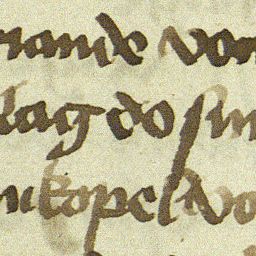 riande von
lag do sin
nkopel vo